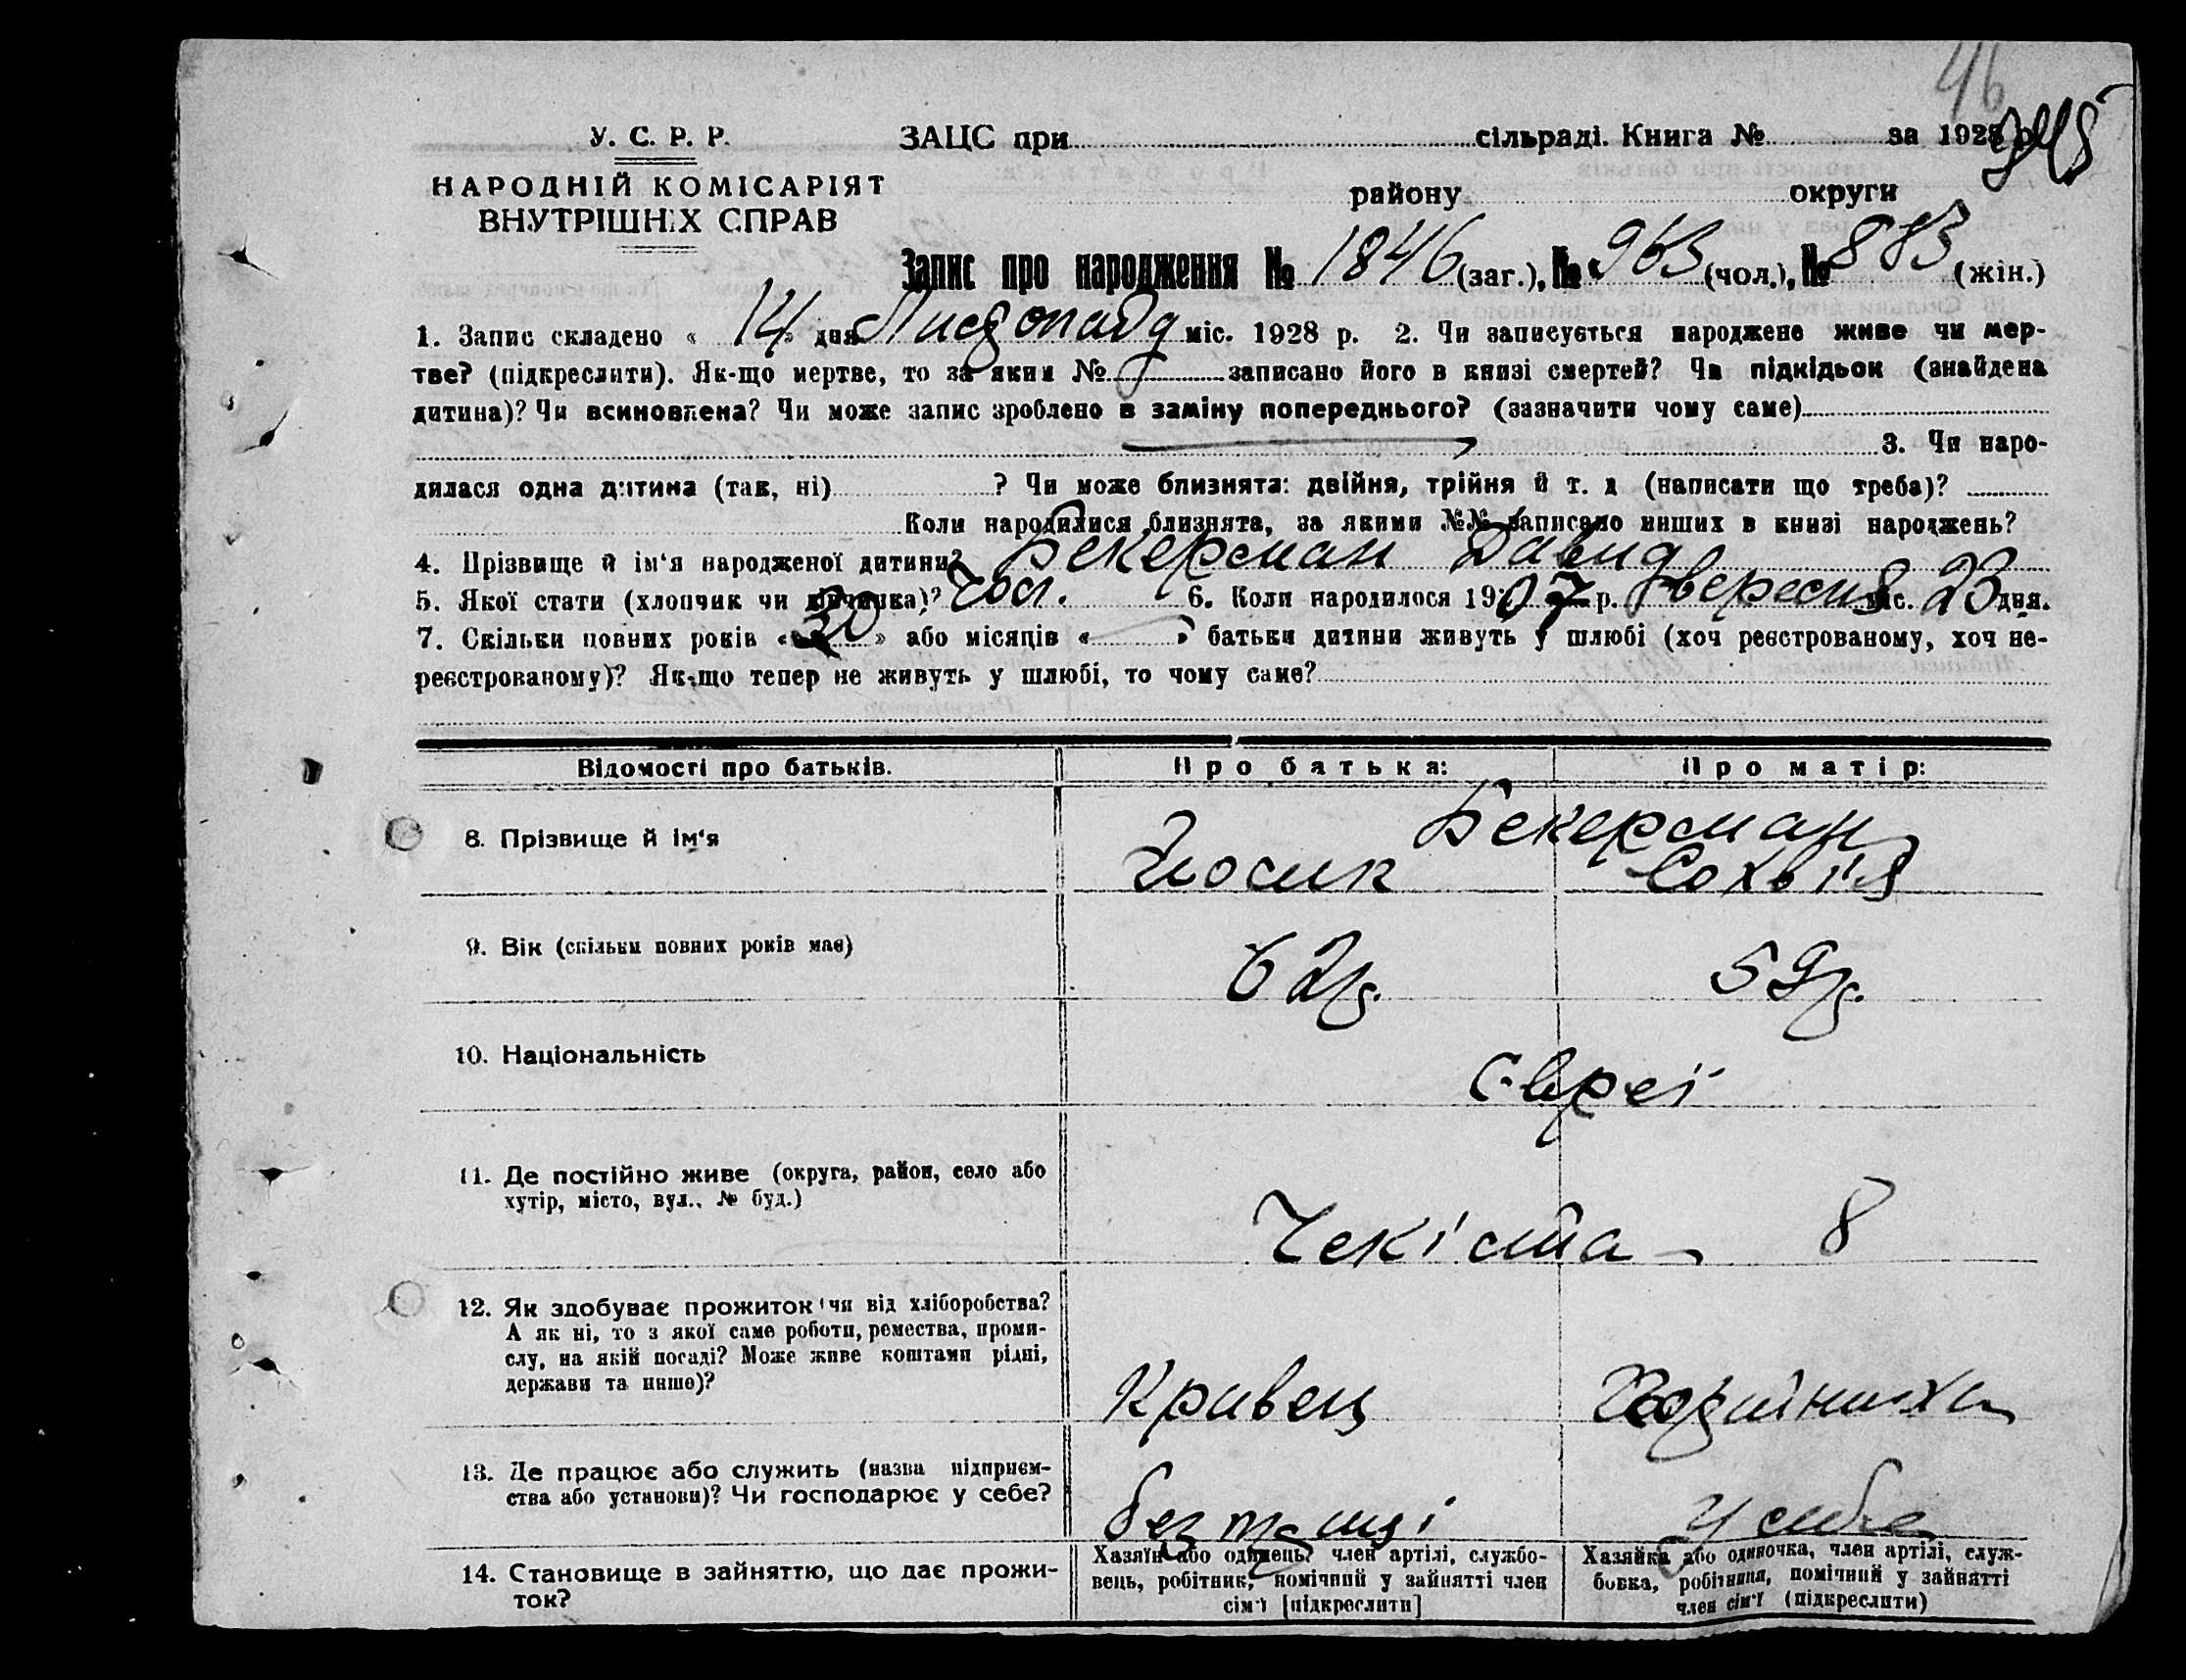 46
345
У. С. Р. Р. ЗАЦС при сільраді. Книга № за 1928 р.
НАРОДНІЙ КОМІСАРІЯТ району округи
ВНУТРІШНІХ СПРАВ
Запис про народження № 1846 (заг.), № 963 (чол.), № 883 (жін.)
1. Запис складено « 14 » дня Листопада міс. 1928 р. 2. Чи записується народжене живе чи мер-
тве? (підкреслити). Як-що мертве, то за яким № записано його в книзі смертей? Чи підкідьок (знайдена
дитина)? Чи всиновлена? Чи може запис зроблено в заміну попереднього? (зазначити чому саме)
3. Чи наро-
дилася одна дитина (так, ні) ? Чи може близнята: двійня, трійня й т. д (написати що треба)?
Коли народилися близнята, за якими №№ записано инших в книзі народжень?
4. Прізвище й ім‘я народженої дитини? Бекерман Давид
5. Якої стати (хлопчик чи дівчинка)? Чол. 6. Коли народилося 1907 р. вересня міс. 23 дня.
7. Скільки повних років « 30 » або місяців « » батьки дитини живуть у шлюбі (хоч реєстрованому, хоч не-
реєстрованому)? Як-що тепер не живуть у шлюбі, то чому саме?
Відомості про батьків. Про батька: Про матір:
Бекерман
8. Прізвище й ім‘я Йосип Софія
9. Вік (скільки повних років має) 62р. 59р.
10. Національність Євреї
11. Де постійно живе (округа, район, село або
хутір, місто, вул., № буд.)
Чекіста - 8
12. Як здобуває прожиток (чи від хліборобства?
А як ні, то з якої саме роботи, ремества, проми-
слу, на якій посаді? Може живе коштами рідні,
держави та инше)?
Кравець Хозяйника
13. Де працює або служить (назва підприєм-
ства або установи)? Чи господарює у себе?
без праці У себе
14. Становище в зайняттю, що дає прожи-
ток?
Хазяїн або одинець? член артілі, службо-
вець, робітник, помічний у зайнятті член
сім‘ї [підкреслити]
Хазяйка або одиночка, член артілі, служ-
бовка, робітниця, помічний у зайнятті
член сім‘ї (підкреслити)